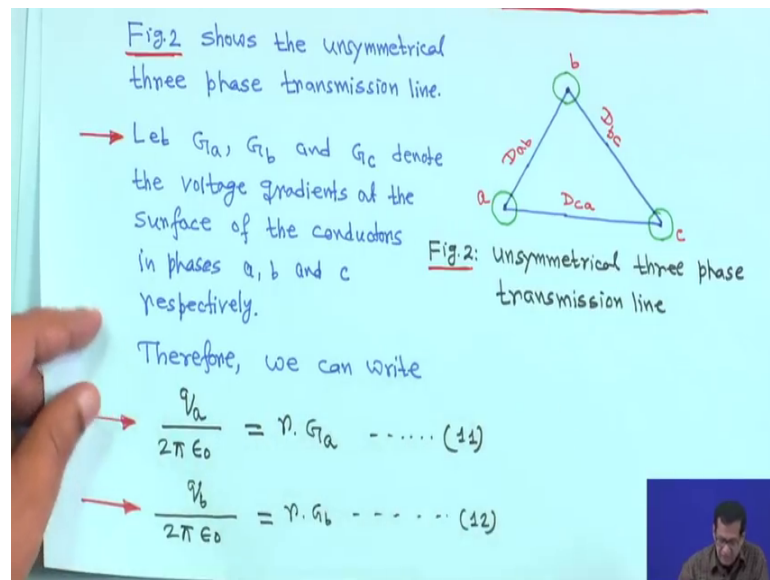 Fig.2 shows the unsymmetrical
three phase transmission line.
→ Let Ga, Gb and Gc denote
the voltage gradients at the
surface of the conductors
in phases a, b and c
respectively.
Therefore, we can write
qa / 2π ε0 = r. Ga ------ (11)
qb / 2π ε0 = r. Gb ------ (12)
b
Dab
Dbc
a
Dca
c
Fig.2: unsymmetrical three phase
transmission line